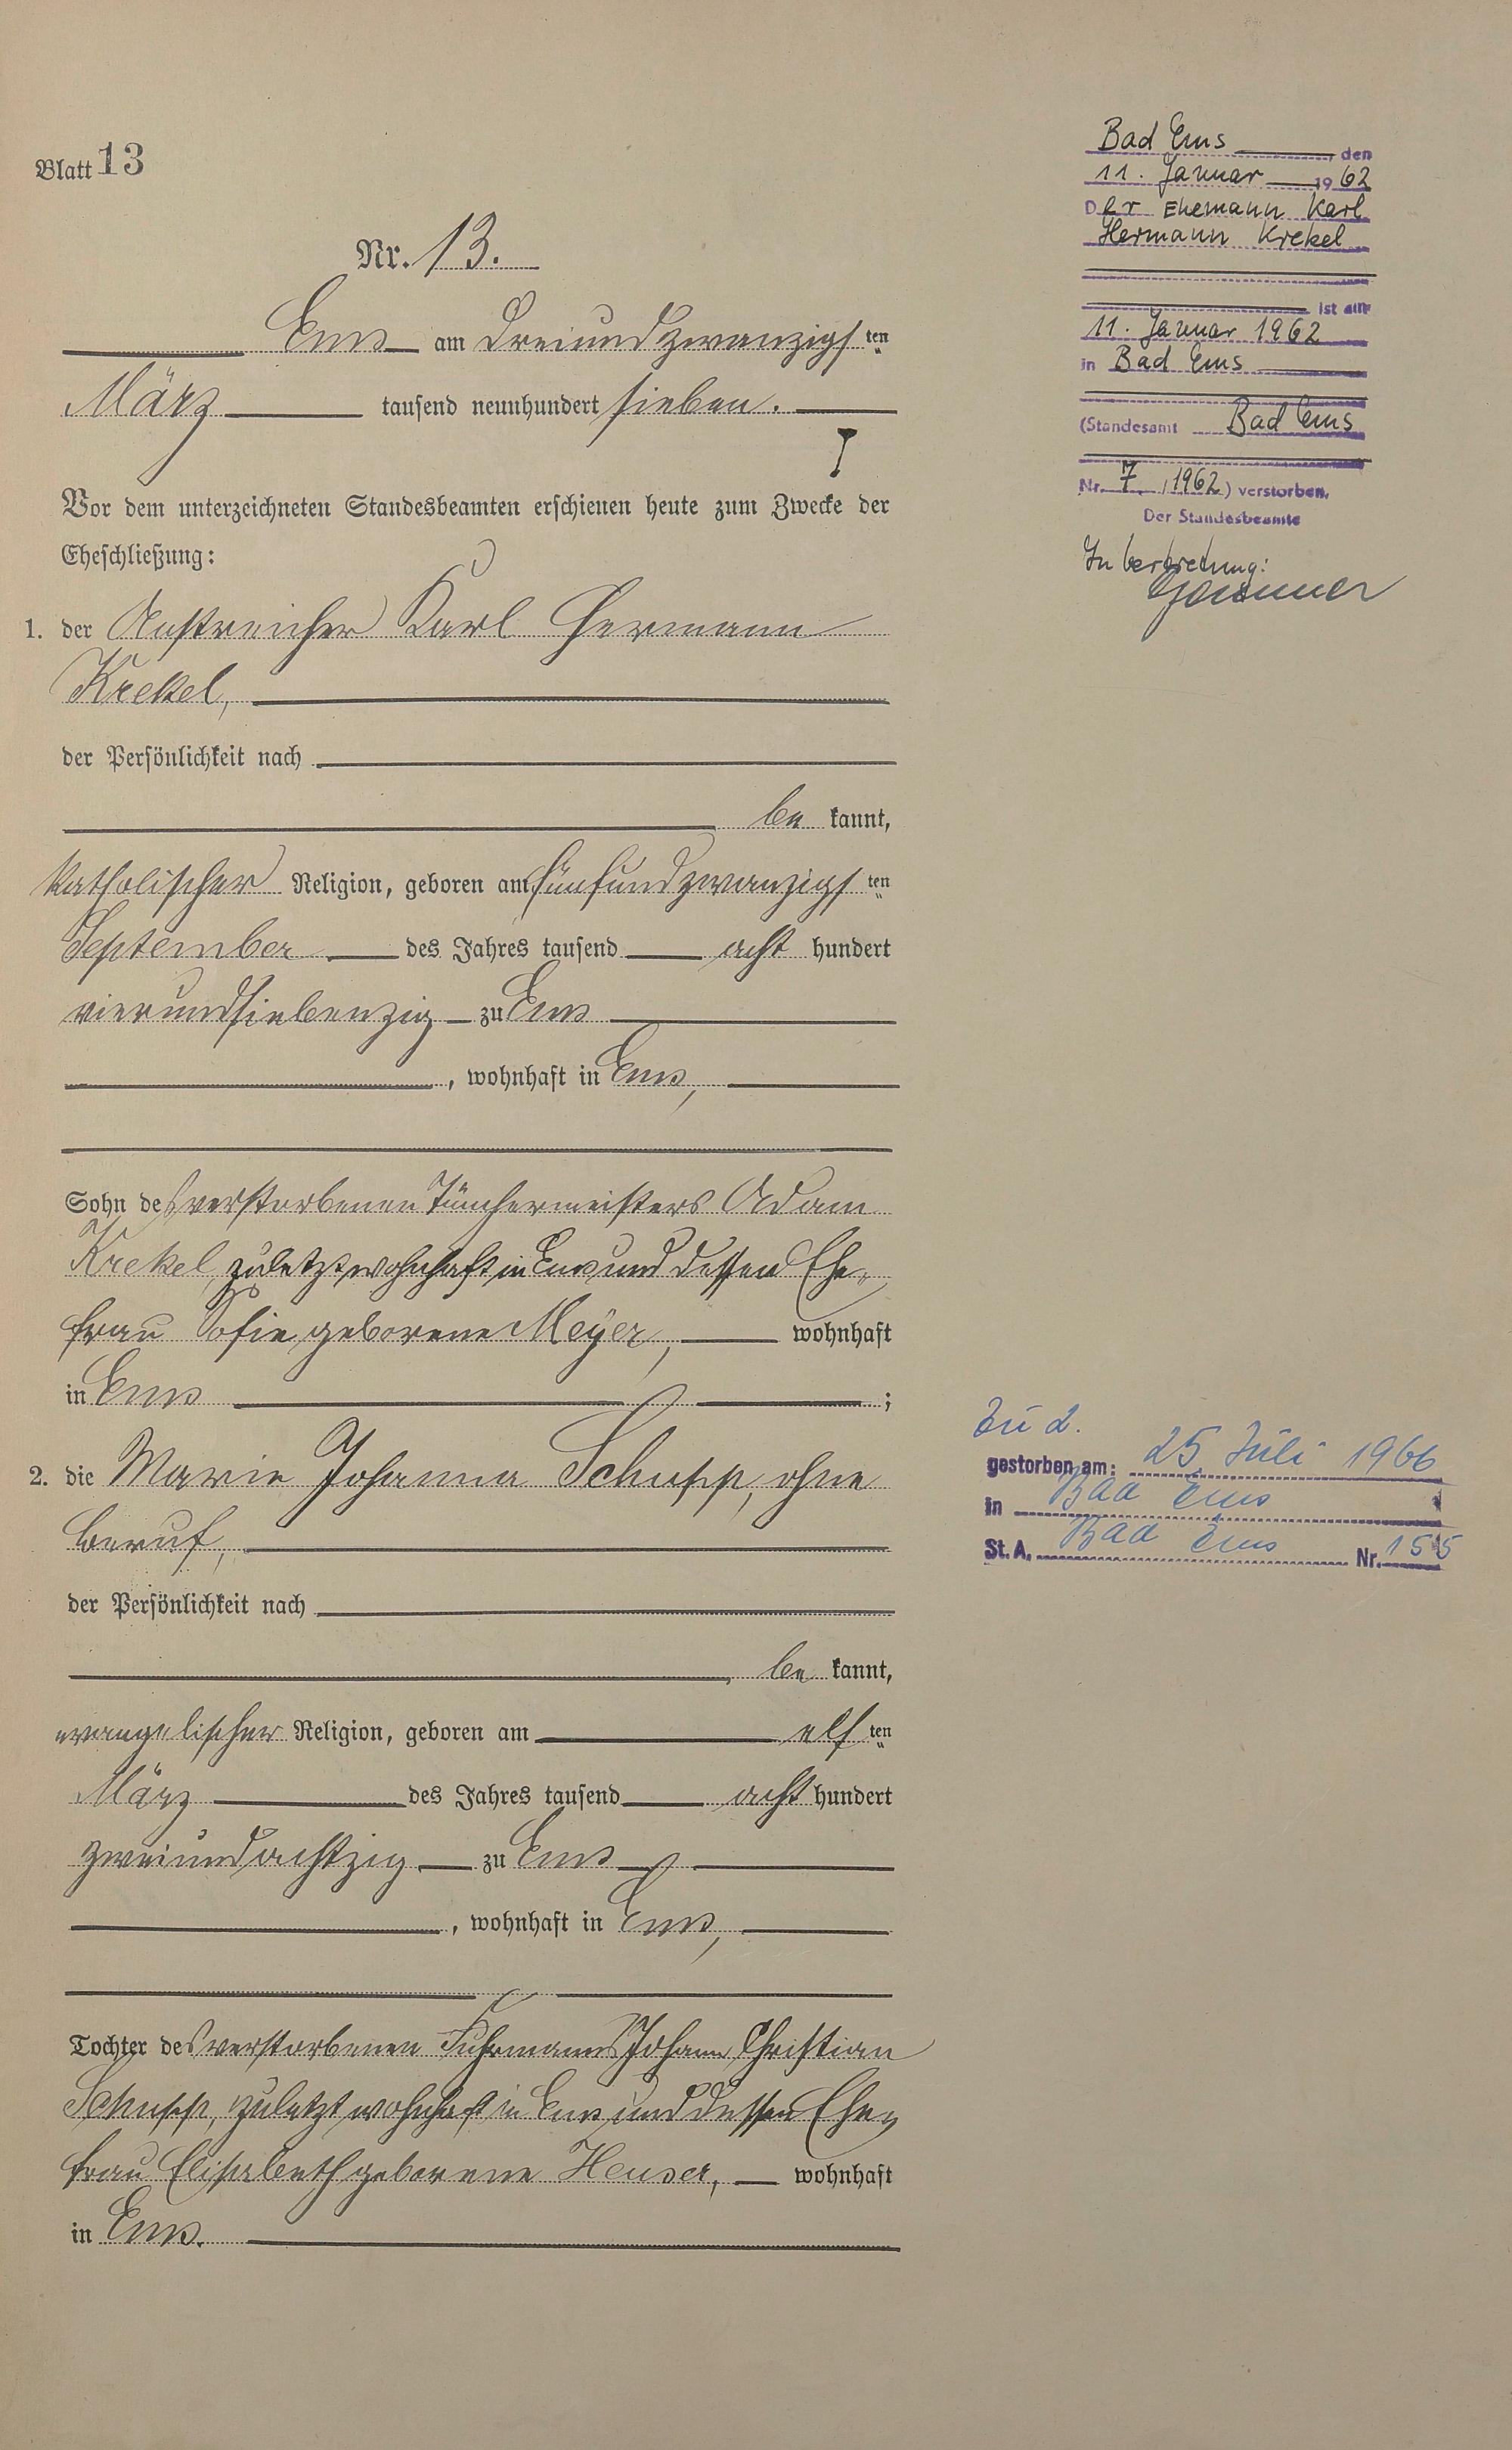 Blatt 13
Nr. 13.
Ems am dreiundzwanzigsten
März tausend neunhundert sieben.
Vor dem unterzeichneten Standesbeamten erschienen heute zum Zwecke der
Eheschließung:
1. der Anstreicher Karl Hermann
Krekel,
der Persönlichkeit nach
be kannt,
katholischer Religion, geboren am fünfundzwanzigsten
September des Jahres tausend acht hundert
vierundsiebenzig zu Ems
, wohnhaft in Ems,
Sohn des verstorbenen Tünchermeisters Adam
Krekel, zuletzt wohnhaft in Ems und dessen Ehe-
frau Sofie geborene Meyer, wohnhaft
in Ems ;
2. die Marie Johanna Schupp, ohne
Beruf,
der Persönlichkeit nach
be kannt,
evangelischer Religion, geboren am elften
März des Jahres tausend acht hundert
zweiundachtzig zu Ems
, wohnhaft in Ems,
Tochter des verstorbenen Fuhrmanns Johann Christian
Schupp, zuletzt wohnhaft in Ems und dessen Ehe-
frau Elisabeth geborene Heuser, wohnhaft
in Ems.
Bad Ems, den
11. Januar 1962
Der Ehemann Karl
Hermann Krekel
ist am
11. Januar 1962
in Bad Ems
(Standesamt Bad Ems
Nr. 7 / 1962) verstorben.
Der Standesbeamte
In Vertretung:
Zu 2.
gestorben am: 25. Juli 1966
in Bad Ems
St. A. Bad Ems Nr. 155